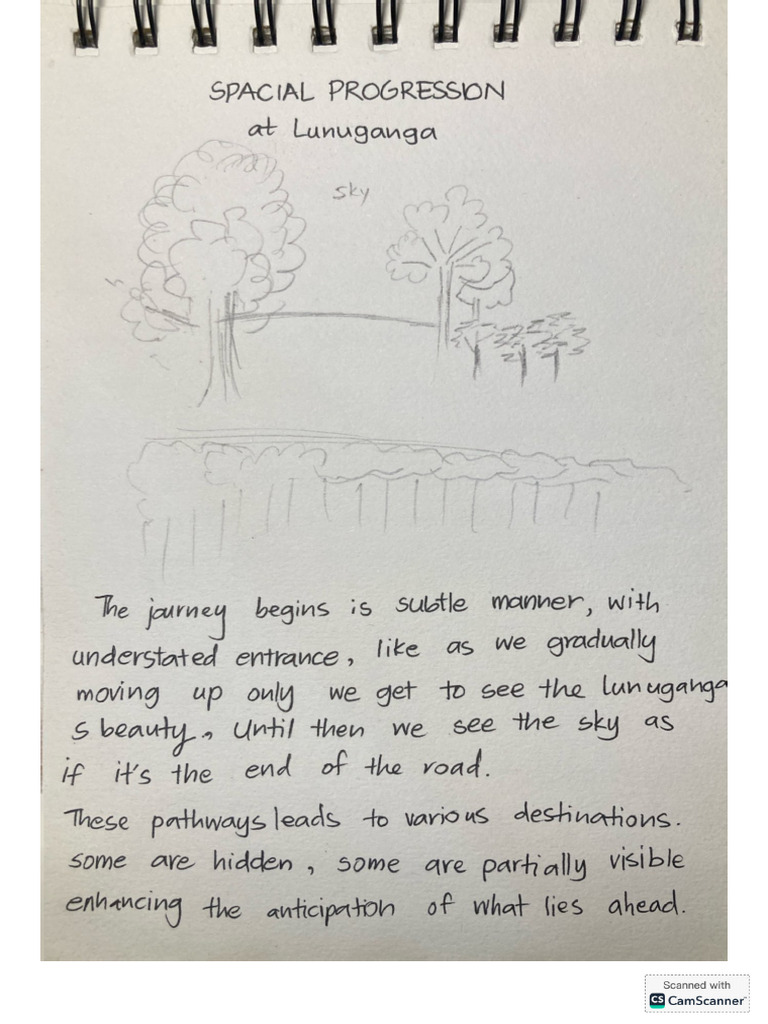 SPACIAL PROGRESSION
at Lunuganga
sky
The journey begins is subtle manner, with
understated entrance, like as we gradually
moving up only we get to see the lunuganga
s beauty. Until then we see the sky as
if it's the end of the road.
These pathways leads to various destinations.
some are hidden, some are partially visible
enhancing the anticipation of what lies ahead.
Scanned with
CS CamScanner